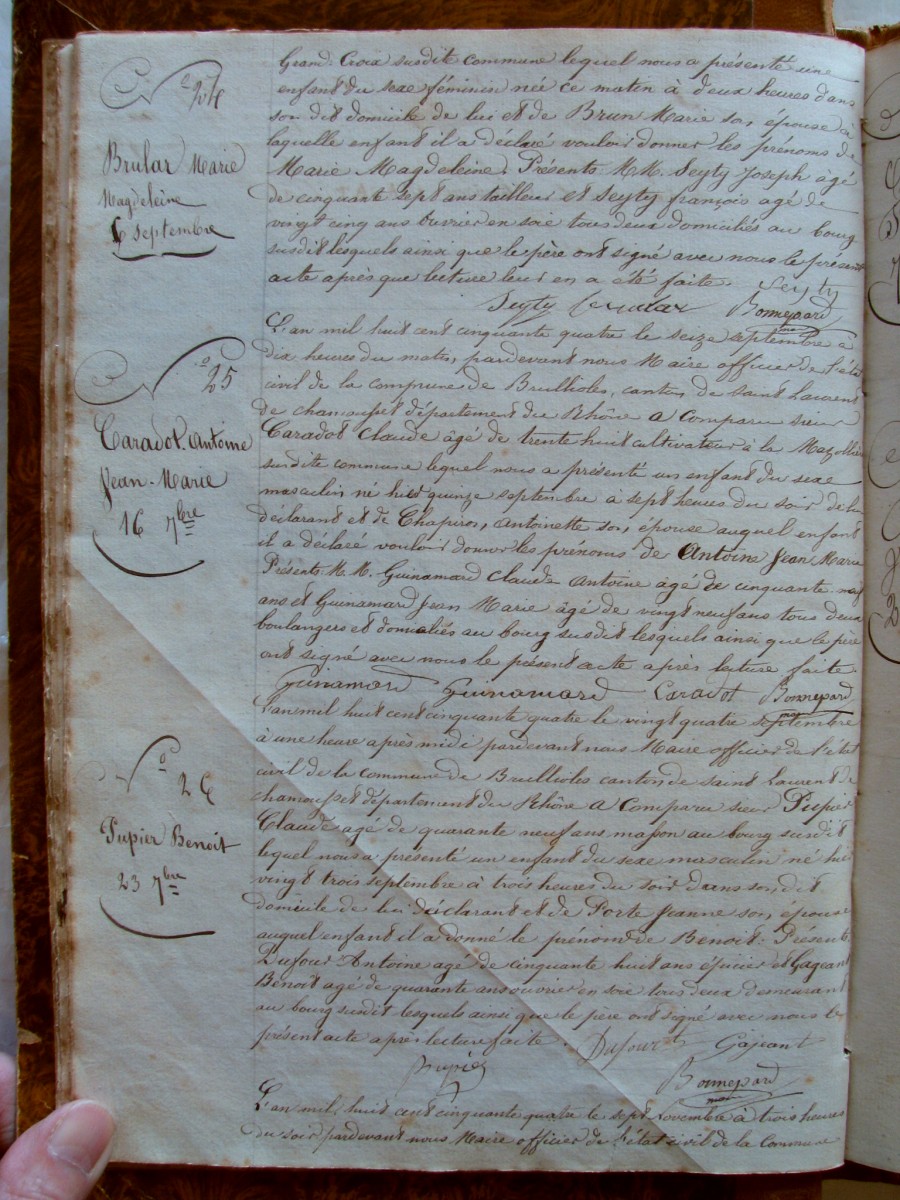 N° 24
Brular Marie
Magdeleine
6 Septembre
Grand-Croix susdite commune lequel nous a présenté une
enfant du sexe féminin née ce matin à deux heures dans
son dit domicile de lui et de Brun Marie son épouse à
laquelle enfant il a déclaré vouloir donner les prénoms de
Marie Magdeleine. Présents M.M. Seyty Joseph âgé
de cinquante sept ans tailleur et Seyty françois agé de
vingt cinq ans ouvrier en soie tous deux domiciliés au bourg
susdit lesquels ainsi que le père ont signé avec nous le présent
acte après que lecture leur en a été faite.
Seyty
Seyty Brular Bonnepard
maire
N° 25
Caradot Antoine
Jean-Marie
16 7bre
L'an mil huit cent cinquante quatre le seize septembre à
dix heures du matin, pardevant nous Maire officier de l'état
civil de la commune de Brullioles, canton de saint Laurent
de chamousset département du Rhône a comparu sieur
Caradot Claude âgé de trente huit cultivateur à la
susdite commune lequel nous a présenté un enfant du sexe
masculin né hier quinze septembre à sept heures du soir de lui
déclarant et de Chapiron, Antoinette son, épouse auquel enfant
il a déclaré vouloir donner les prénoms de Antoine Jean Marie
Présents M.M. Guinamard Claude Antoine âgé de cinquante neuf
ans et Guinamard Jean Marie âgé de vingt neuf ans tous deux
boulangers et domiciliés au bourg susdit lesquels ainsi que le père
ont signé avec nous le présent acte après lecture faite.
Guinamard Guinamard Caradot Bonnepard
maire
N° 26
Pupier Benoit
23 7bre
L'an mil huit cent cinquante quatre le vingt quatre septembre
à une heure après midi pardevant nous Maire officier de l'état
civil de la commune de Brullioles canton de saint Laurent de
chamousset département du Rhône a comparu sieur Pupier
Claude agé de quarante neuf ans masson au bourg susdit
lequel nous a présenté un enfant du sexe masculin né hier
vingt trois septembre à trois heures du soir dans son, dit
domicile de lui déclarant et de Porte Jeanne son, épouse
auquel enfant il a donné le prénom de Benoit: Présents
Dufour Antoine agé de cinquante huit ans épicier et Gageant
Benoit agé de quarante ans ouvrier en soie tous deux demeurant
au bourg susdit lesquels ainsi que le père ont signé avec nous le
présent acte après lecture faite. Dufour Gajeant
Pupier Bonnepard
maire
L'an mil, huit cent cinquante quatre le sept Novembre à trois heures
du soir pardevant nous Maire officier de l'état civil de la Commune